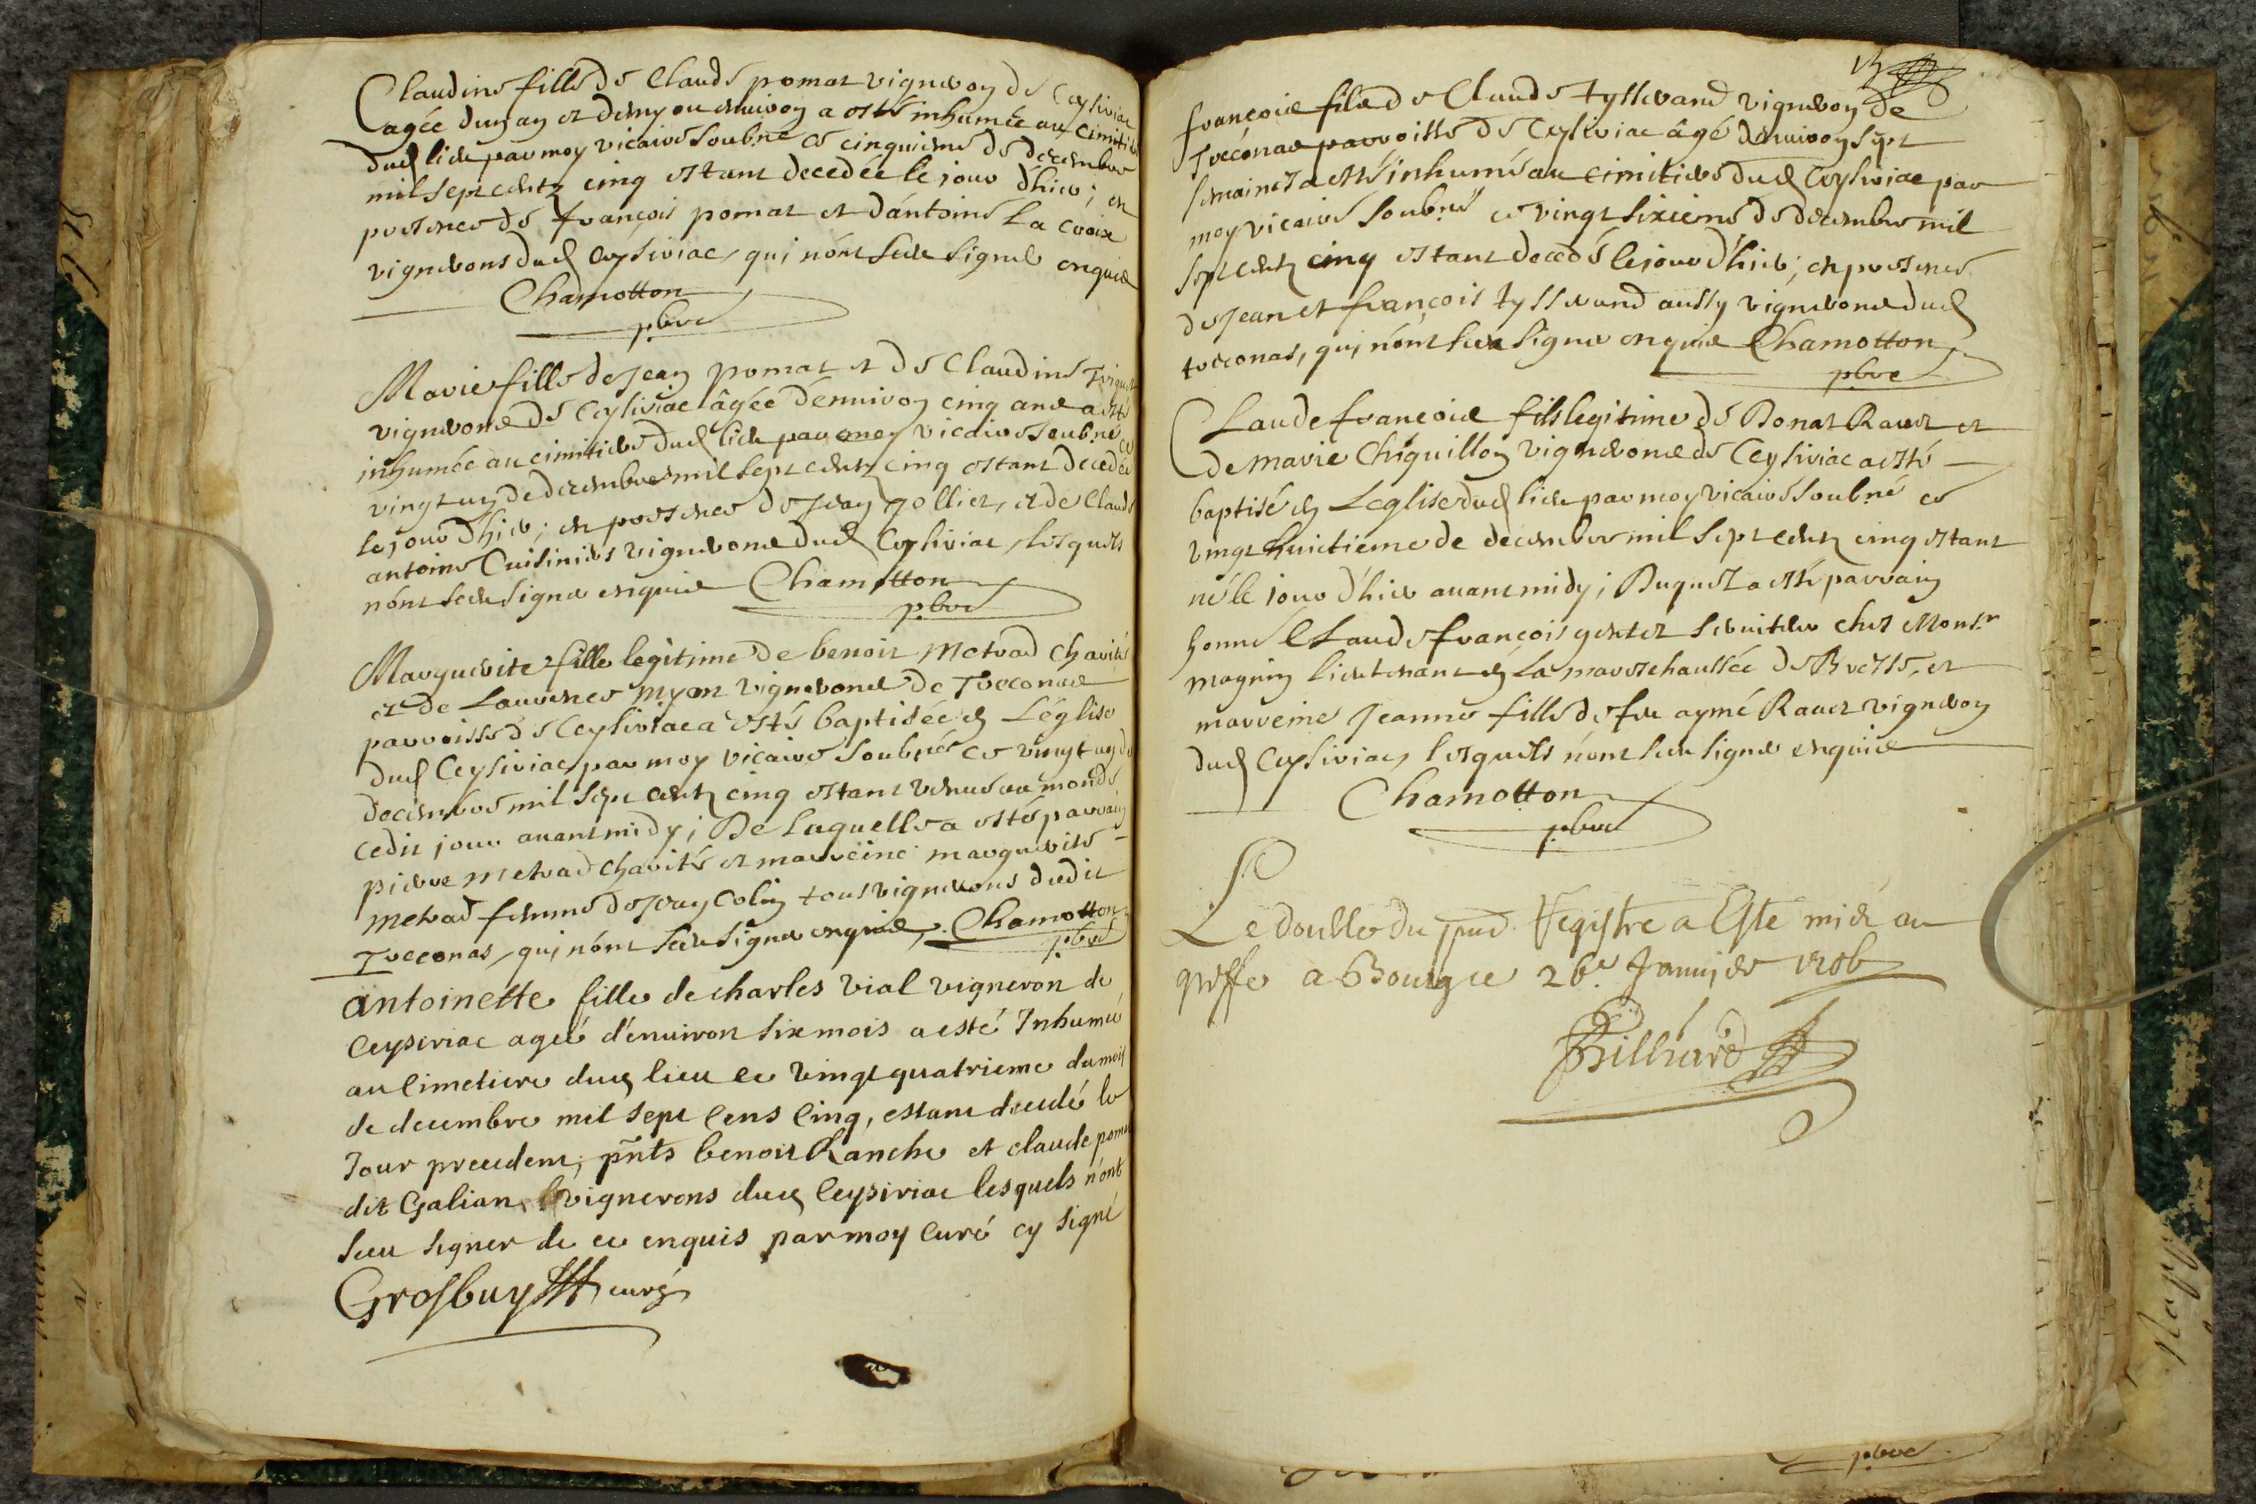 Claudine fille de Claude pomat vigneron de Ceyseriac
agée dun an et demy ou enuiron a esté inhumée au Cimitiere
dud lieu par moy vicaire soubné ce cinquieme de decembre
mil sept centz cinq estant decedée le jour d'hier; en
presence de françois pomat et d'antoine La Croix
vignerons dud Ceyseriac, qui n'ont sceu signer enquis
Chamotton
pbre
Marie fille de Jean pomat et de Claudine
vignerons de Ceyseriac âgée d'enuiron cinq ans a esté
inhumée au cimitiere dud lieu par moy vicaire soubné ce
vingt un de decembre mil sept centz cinq estant decedée
le jour d'hier; en presence de Jean gollier, et de Claude
antoine Cuisinier vignerons dud Ceyseriac, lesquels
n'ont sceu signer enquis Chamotton
pbre
Marguerite fille legitime de benoit Metrad Charité
et de Laurence myon vignerons de Treconas
parroisse de Ceyseriac a esté baptisée en L'église
dud Ceyseriac par moy vicaire soubné ce vingt un de
decembre mil sept centz cinq estant venue au monde
cedit jour auant midy; De laquelle a esté parrain
pierre Metrad Charité et marreine marguerite
Metrad femme de Jean Colin tous vignerons dudit
Treconas, qui n'ont sceu signer enquis, Chamotton
pbre
antoinette fille de charles vial vigneron de
Ceyseriac ageé d'enuiron six mois a esté Inhumeé
au Cimetiere dud lieu ce vingt quatrieme du mois
de decembre mil sept Cens Cinq, estant decedé le
Jour precedent, pñts benoit Ranche et claude pomat
dit Galian vignerons dud Ceyseriac lesquels n'ont
sceu signer de ce enquis par moy Curé cy signé
Grosbuy curé
françois fils de Claude tysserand vigneron de
Treconas parroisse de Ceyseriac âgé d'enuiron sept
semaines a esté inhumé au cimitiere dud Ceyseriac par
moy vicaire soubné ce vingt sixieme de decembre mil
sept centz cinq estant decedé le jour d'hier; en presence
de Jean et françois tysserand aussy vignerons dud
treconas, qui n'ont sceu signer enquis Chamotton
pbre
Claude françois fils legitime de Donat Rauet et
de Marie Chiquillon vignerons de Ceyseriac a esté
baptisé en L'eglise dud lieu par moy vicaire soubné ce
vingt huictieme de decembre mil sept centz cinq estant
né le jour d'hier auant midy; Duquel a esté parrain
honné Claude françois gentet seruiteur chez Monsr
magnin lieutenant en La mareschaussée de Bresse, et
marreine Jeanne fille de feu aymé Rauet vigneron
dud Ceyseriac, lesquels n'ont sceu signer enquis
Chamotton
pbre
Le double du pnt Registre a Esté mis au
greffe a Bourg ce 26e Januier 1706
Brilliard
pbre